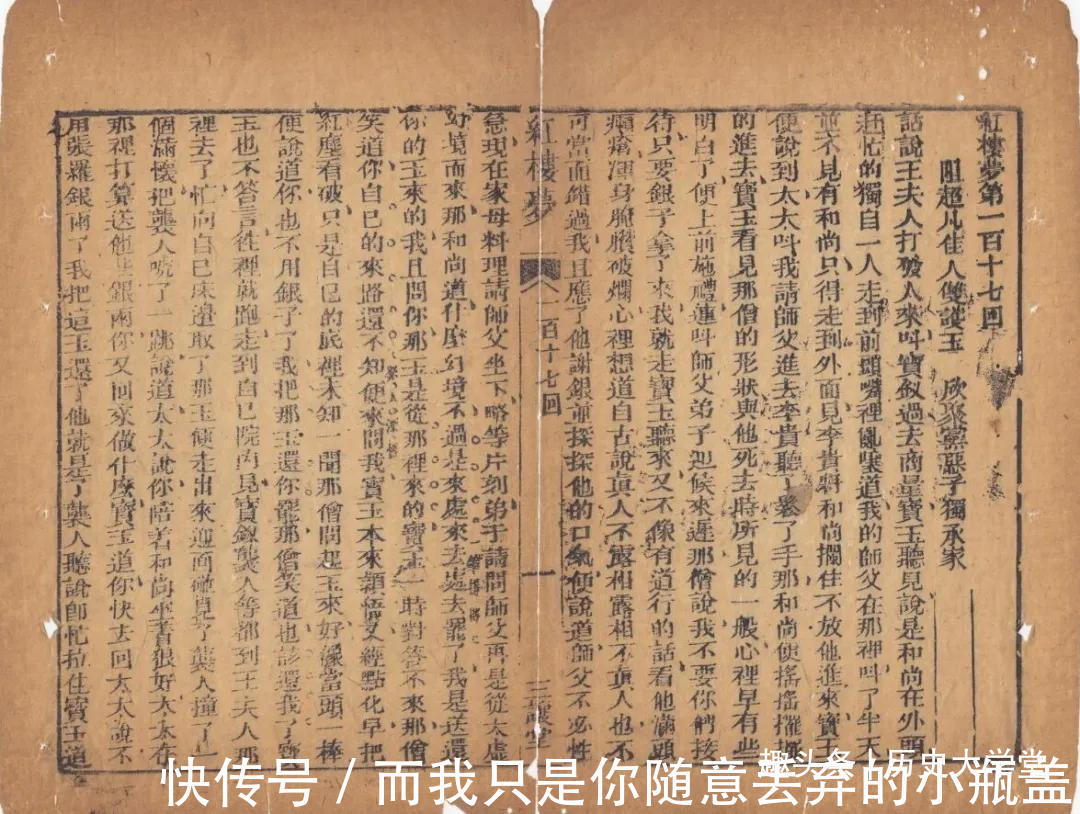 紅樓夢第一百十七回
阻超凡佳人雙護玉　欣聚黨惡子獨承家
話說王夫人打發人來呌寶釵過去商量寶玉聽見說是和尚在外頭
赶忙的獨自一人走到前頭嘴裡亂嚷道我的師父在那裡呌了半天
並不見有和尚只得走到外面見李貴將和尚攔住不放他進來寶玉
便說到太太呌我請師父進去李貴聽了鬆了手那和尚便搖搖擺擺
的進去寶玉看見那僧的形狀與他死去時所見的一般心裡早有些
明白了便上前施禮連呌師父弟子迎候來遲那僧說我不要你們接
待只要銀子拿了來我就走寶玉聽來又不像有道行的話看他滿頭
癩瘡渾身腌臢破爛心裡想道自古說真人不露相露相不真人也不
可當面錯過我且應了他謝銀並探探他的口氣便說道師父不必性
紅樓夢
一百十七回
一
三讓堂
急現在家母料理請師父坐下略等片刻弟子請問師父可是從太虛
幻境而來那和尚道什麽幻境不過是來處來去處去罷了我是送還
你的玉來的我且問你那玉是從那裡來的寶玉一時對答不來那僧
笑道你自已的來路還不知便來問我寶玉本來穎悟又經點化早把
紅塵看破只是自已的底裡未知一聞那僧問起玉來好像當頭一棒
便說道你也不用銀子了我把那玉還你罷那僧笑道也該還我了寶
玉也不答言徃裡就跑走到自已院內見寶釵襲人等都到王夫人那
裡去了忙向自已床邊取了那玉便走出來迎面碰見了襲人撞了一
個滿懷把襲人唬了一跳說道太太說你陪著和尚坐著狠好太太在
那裡打算送他些銀兩你又回來做什麽寶玉道你快去回太太說不
用張羅銀兩了我把這玉還了他就是了襲人聽說卽忙拉住寶玉道
趣头条 / 历史大学堂
快传号 / 而我只是你随意丢弃的小瓶盖